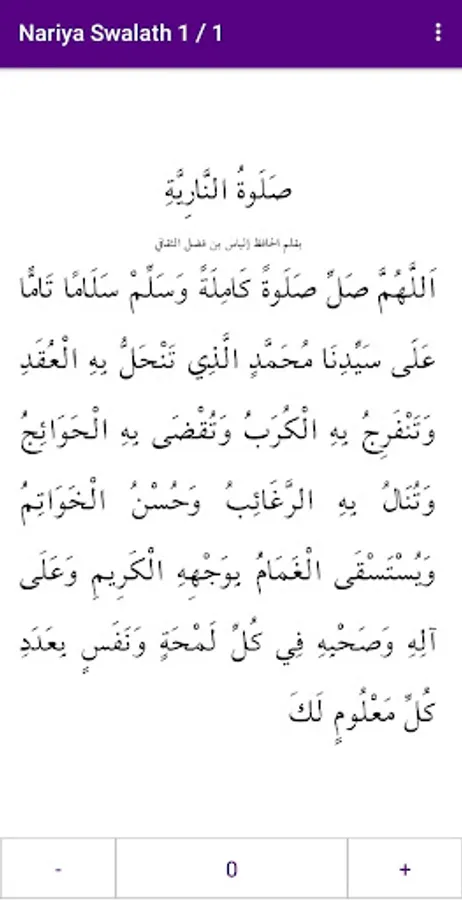 Nariya Swalath 1 / 1
صَلَوةُ النَّارِيَّةِ
بقلم الحافظ إلياس بن فضل الثقافي
اَللَّهُمَّ صَلِّ صَلَوةً كَامِلَةً وَسَلِّمْ سَلَامًا تَامًّا
عَلَى سَيِّدِنَا مُحَمَّدٍ الَّذِي تَنْحَلُّ بِهِ الْعُقَدِ
وَتَنْفَرِجُ بِهِ الْكُرَبُ وَتُقْضَى بِهِ الْحَوَائِجُ
وَتُنَالُ بِهِ الرَّغَائِبُ وَحُسْنُ الْخَوَاتِمُ
وَيُسْتَسْقَى الْغَمَامُ بِوَجْهِهِ الْكَرِيمِ وَعَلَى
آلِهِ وَصَحْبِهِ فِي كُلِّ لَمْحَةٍ وَنَفَسٍ بِعَدَدِ
كُلِّ مَعْلُومٍ لَكَ
- 0 +